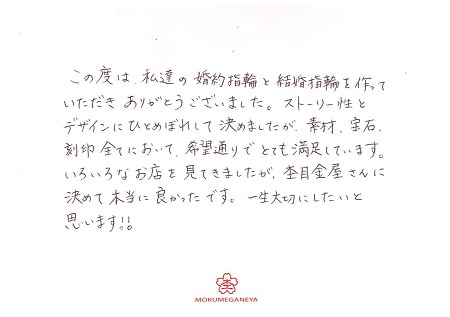 この度は、私達の婚約指輪と結婚指輪を作って
いただきありがとうございました。ストーリー性と
デザインにひとめぼれして決めましたが、素材、宝石、
刻印全てにおいて、希望通りでとても満足しています。
いろいろなお店を見てきましたが、杢目金屋さんに
決めて本当に良かったです。一生大切にしたいと
思います!!
杢
MOKUMEGANEYA